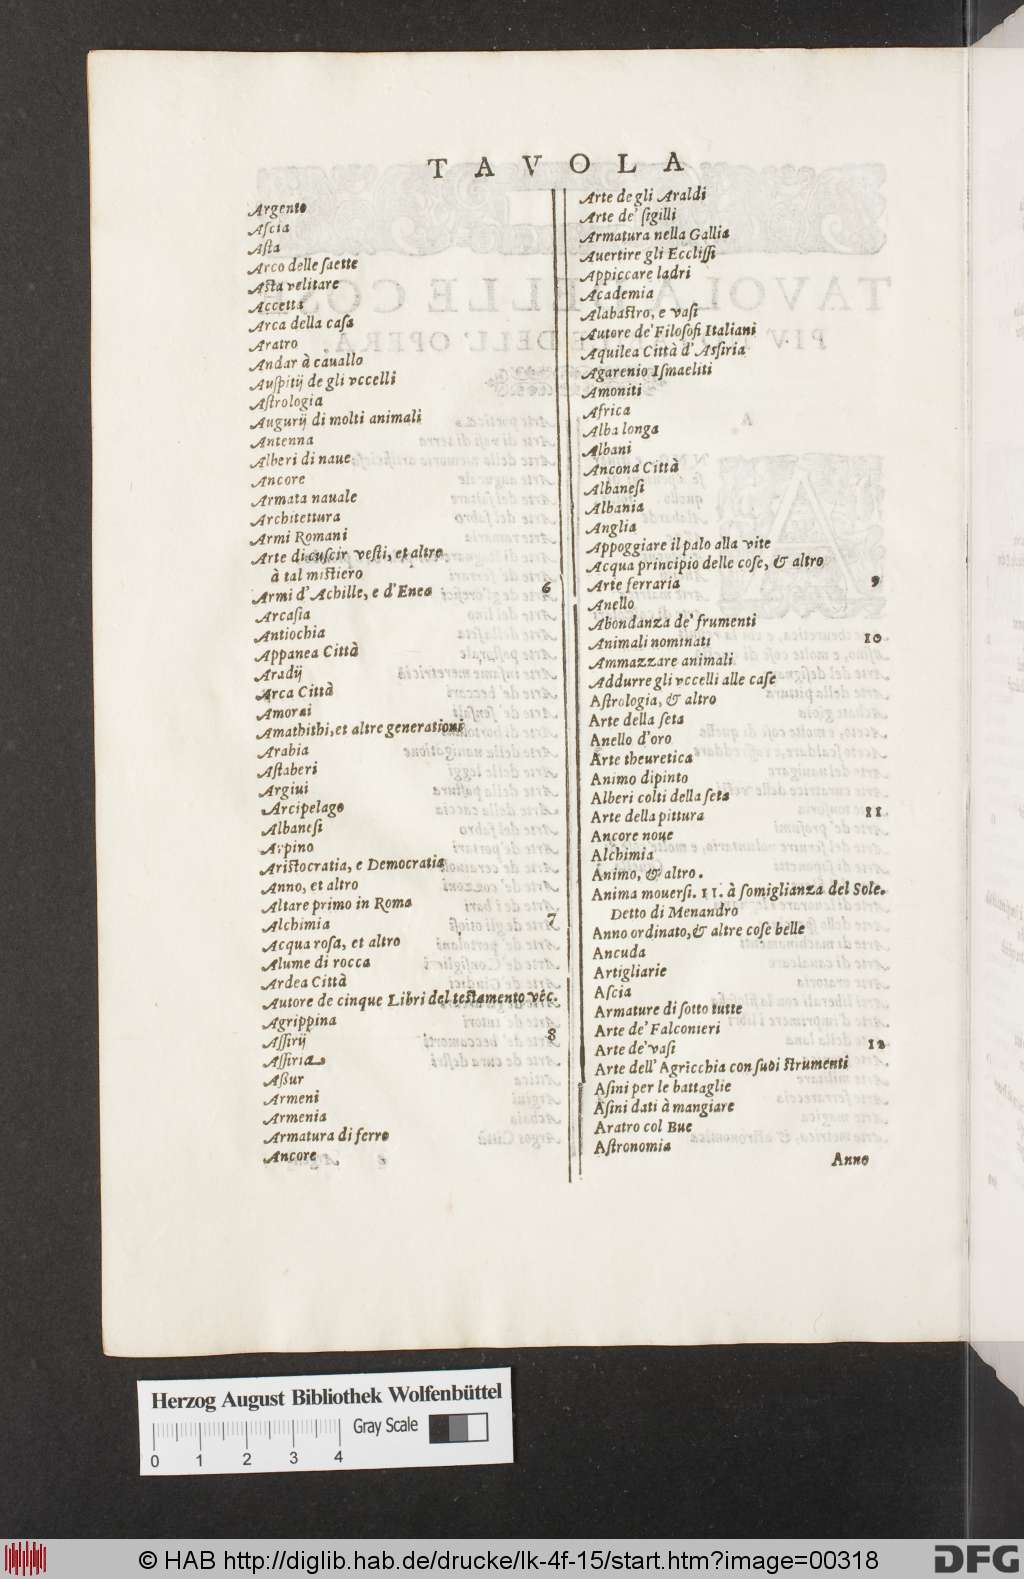 TAVOLA
Argento
Aſcia
Aſta
Arco delle ſaette
Aſta velitare
Accetta
Arca della caſa
Aratro
Andar à cauallo
Auſpitij de gli vccelli
Aſtrologia
Augurij di molti animali
Antenna
Alberi di naue
Ancore
Armata nauale
Architettura
Armi Romani
Arte di cuſcir veſti, et altro
à tal miſtiero
Armi d'Achille, e d'Enea 6
Arcaſia
Antiochia
Appanea Città
Aradij
Arca Città
Amorai
Amathithi, et altre generationi
Arabia
Aſtaberi
Argiui
Arcipelago
Albaneſi
Arpino
Ariſtocratia, e Democratia
Anno, et altro
Altare primo in Roma
Alchimia 7
Acqua roſa, et altro
Alume di rocca
Ardea Città
Autore de cinque Libri del teſtamento véc.
Agrippina
Aſſirij 8
Aſſiria
Aſſur
Armeni
Armenia
Armatura di ferro
Ancore
Arte de gli Araldi
Arte de' ſigilli
Armatura nella Gallia
Auertire gli Eccliſſi
Appiccare ladri
Academia
Alabaſtro, e vaſi
Autore de' Filoſofi Italiani
Aquilea Città d'Aſſiria
Agarenio Iſmaeliti
Amoniti
Africa
Alba longa
Albani
Ancona Città
Albaneſi
Albania
Anglia
Appoggiare il palo alla vite
Acqua principio delle coſe, & altro
Arte ferraria 9
Anello
Abondanza de' frumenti
Animali nominati 10
Ammazzare animali
Addurre gli vccelli alle caſe
Aſtrologia, & altro
Arte della ſeta
Anello d'oro
Arte theuretica
Animo dipinto
Alberi colti della ſeta
Arte della pittura 11
Ancore noue
Alchimia
Animo, & altro.
Anima mouerſi. 11. à ſomiglianza del Sole.
Detto di Menandro
Anno ordinato, & altre coſe belle
Ancuda
Artigliarie
Aſcia
Armature di ſotto tutte
Arte de' Falconieri
Arte de' vaſi 12
Arte dell' Agricchia con ſuoi ſtrumenti
Aſini per le battaglie
Aſini dati à mangiare
Aratro col Bue
Aſtronomia
Anno
Herzog August Bibliothek Wolfenbüttel
Gray Scale
0 1 2 3 4
© HAB http://diglib.hab.de/drucke/lk-4f-15/start.htm?image=00318
DFG